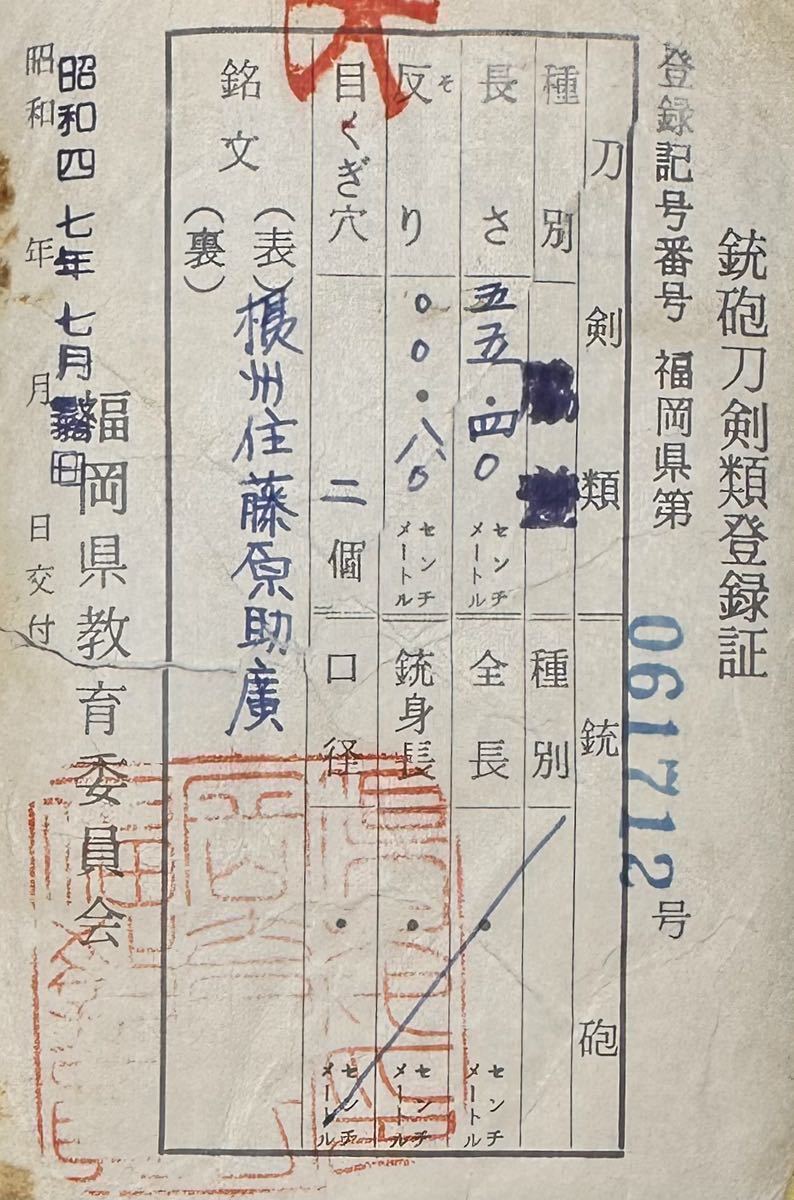 銃砲刀剣類登録証
登録記号番号 福岡県第 061712 号
刀剣類 銃砲
種別
種別
長さ 五五.四〇 センチメートル
全長 . センチメートル
反り 〇〇.八〇 センチメートル
そ
銃身長 . センチメートル
目くぎ穴 二個
口径 . センチメートル
銘文 (表) 摂州住藤原助廣
(裏)
福岡県教育委員会
昭和四七年七月 日
昭和 年 月 日交付